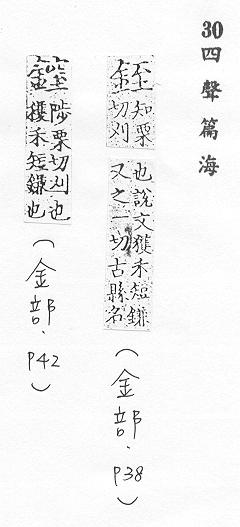 30四聲篇海
銍知栗
切刈
也說文獲禾短鎌
又之一切古縣名
(金部.P38)
陟栗切刈也
獲禾短鎌也
(金部.P42)